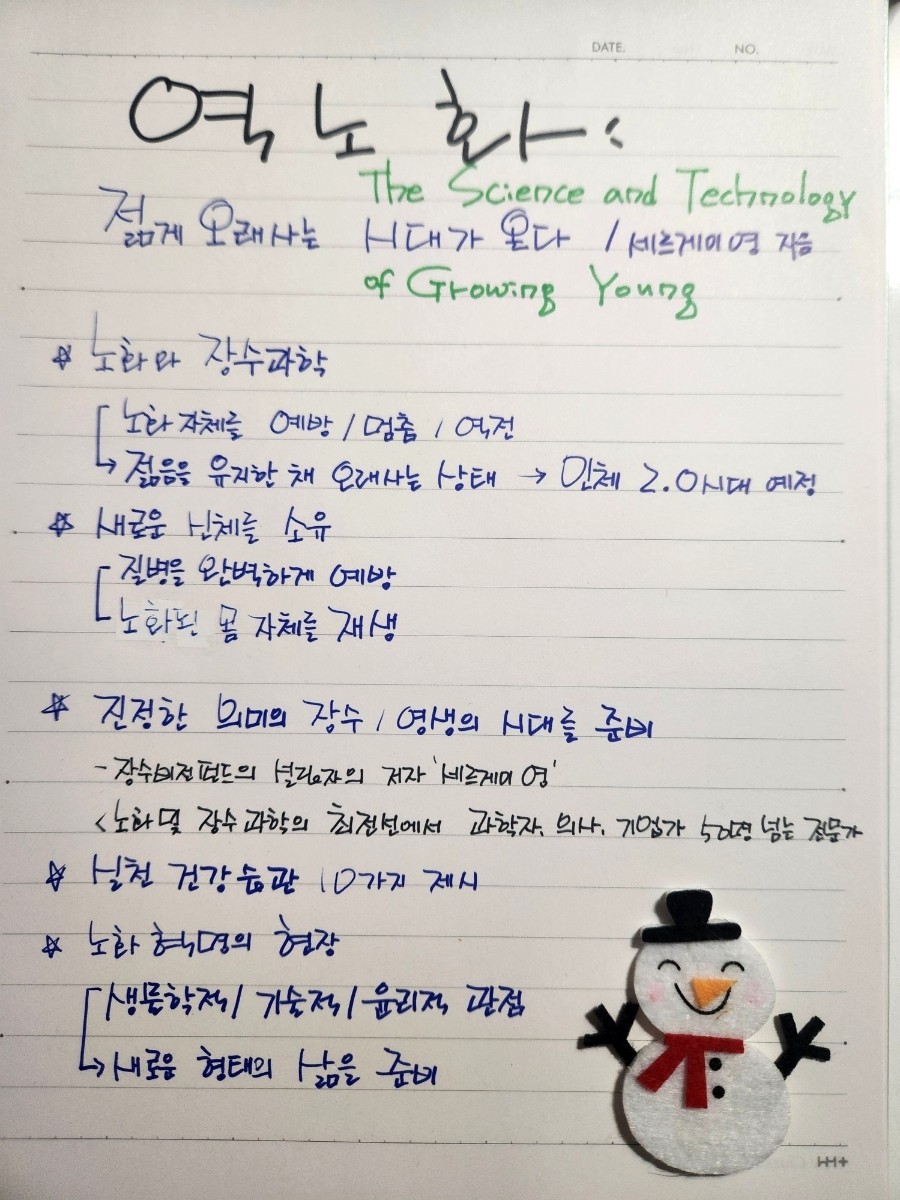 DATE. NO.
역노화:
The Science and Technology
젊게 오래사는 시대가 온다 / 세르게이 영 지음
of Growing Young
☆ 노화와 장수과학
노화 자체를 예방 / 멈춤 / 역전
→ 젊음을 유지한 채 오래사는 상태 → 인체 2.0시대 예정
☆ 새로운 신체를 소유
질병을 완벽하게 예방
노화된 몸 자체를 재생
☆ 진정한 의미의 장수 / 영생의 시대를 준비
- 장수비전펀드의 설립자의 저자 '세르게이 영'
< 노화 및 장수 과학의 최전선에서 과학자, 의사, 기업가 50명 넘는 전문가
☆ 실천 건강습관 10가지 제시
☆ 노화 혁명의 현장
생물학적 / 기술적 / 윤리적 관점
→ 새로운 형태의 삶을 준비